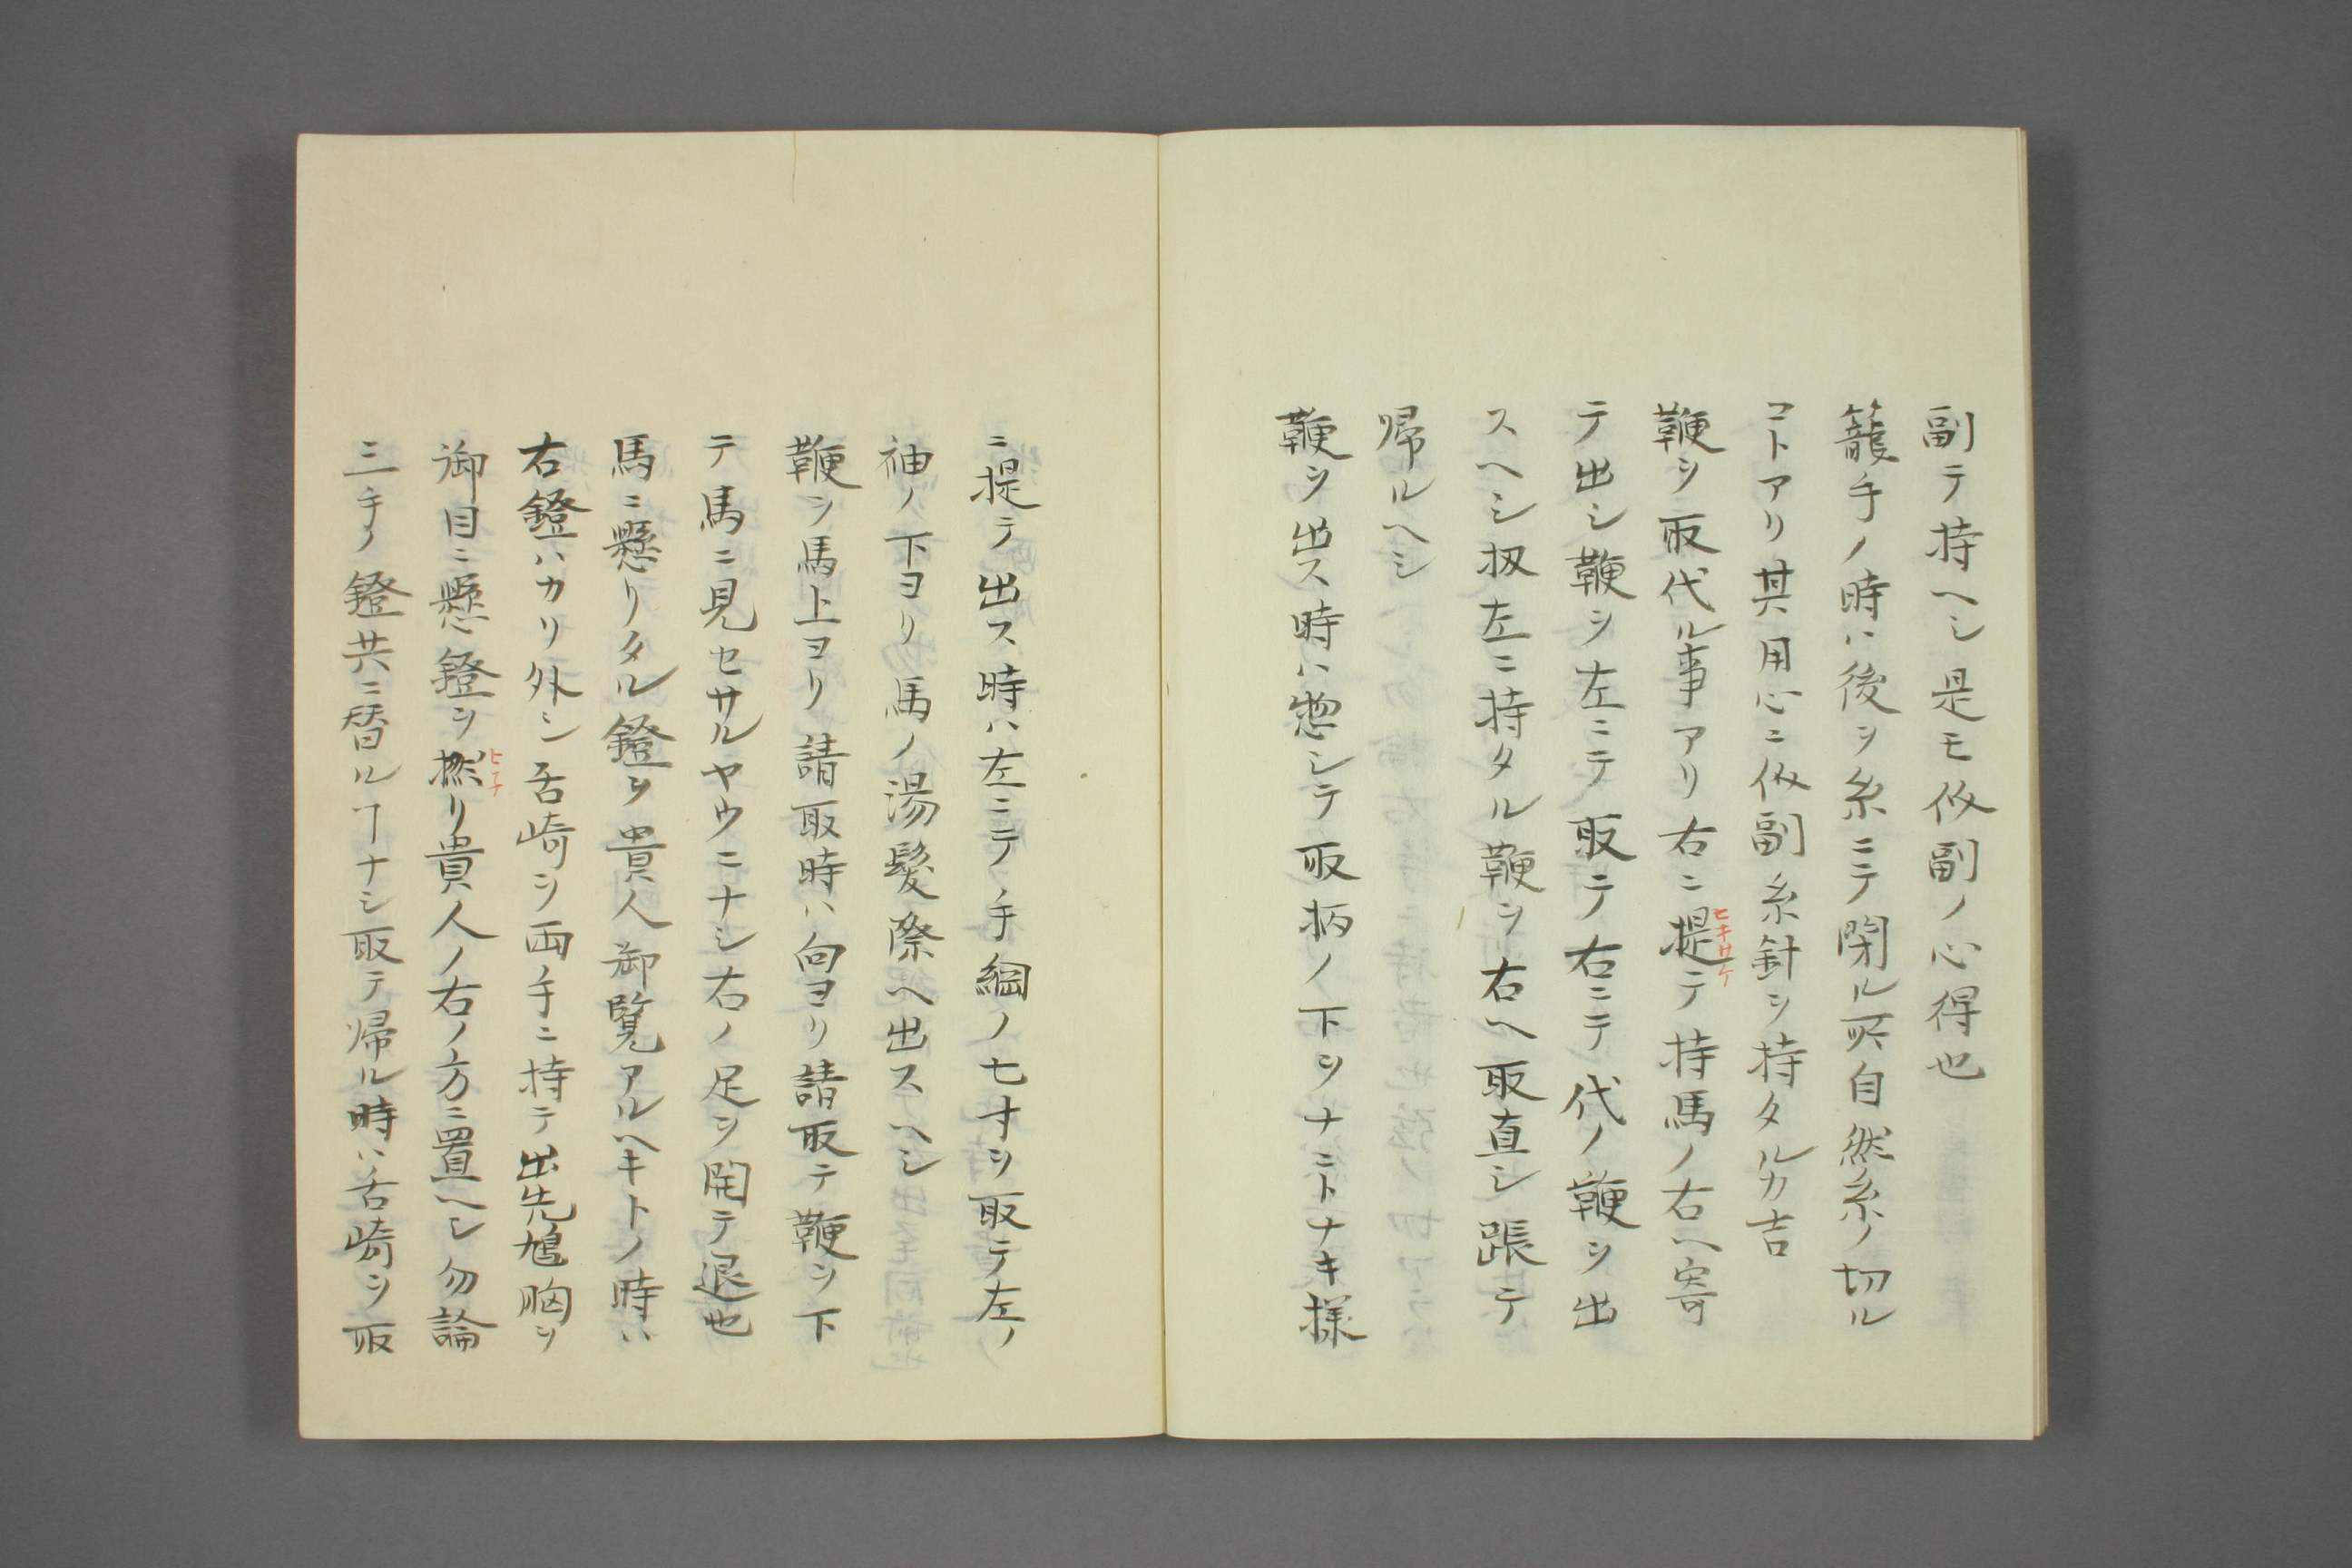 副テ持ヘシ是モ攸副ノ心得也
籠手ノ時ハ後ヲ糸ニテ閉ル所自然糸ノ切ル
コトアリ其用心ニ攸副糸針ヲ持タルカ吉
鞭ヲ取代ル事アリ右ニ提テ持馬ノ右ヘ寄
ヒキサケ
テ出シ鞭ヲ左ニテ取テ右ニテ代ノ鞭ヲ出
スヘシ扨左ニ持タル鞭ヲ右ヘ取直シ踞テ
帰ルヘシ
鞭ヲ出ス時ハ惣シテ取柄ノ下ヲナニトナキ様
ニ提テ出ス時ハ左ニテ手綱ノ七寸ヲ取テ左ノ
袖ノ下ヨリ馬ノ湯髪際ヘ出スヘシ
鞭ヲ馬上ヨリ請取時ハ向ヨリ請取テ鞭ヲ下
テ馬ニ見セサルヤウニナシ右ノ足ヲ開テ退也
馬ニ懸リタル鐙ヲ貴人御覧アルヘキトノ時ハ
右鐙ハカリ外シ舌崎ヲ両手ニ持テ出先鳩胸ヲ
御目ニ懸鐙ヲ撚リ貴人ノ右ノ方ニ置ヘシ勿論
三手ノ鐙共ニ替ルヿナシ取テ帰ル時ハ舌崎ヲ取